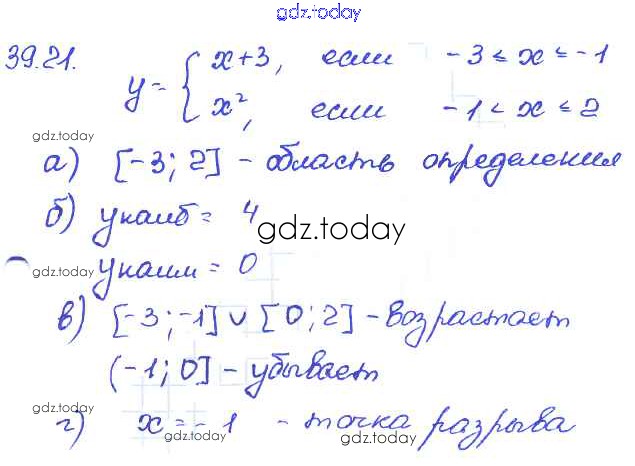 gdz.today
39.21. y = { x+3, если -3 ≤ x ≤ -1
x², если -1 < x ≤ 2
gdz.today
а) [-3; 2] - область определения
б) yнаиб = 4
gdz.today
gdz.today
yнаим = 0
в) [-3; -1] ∪ [0; 2] - возрастает
(-1; 0] - убывает
gdz.today
г) x = -1 - точка разрыва
gdz.today
gdz.today